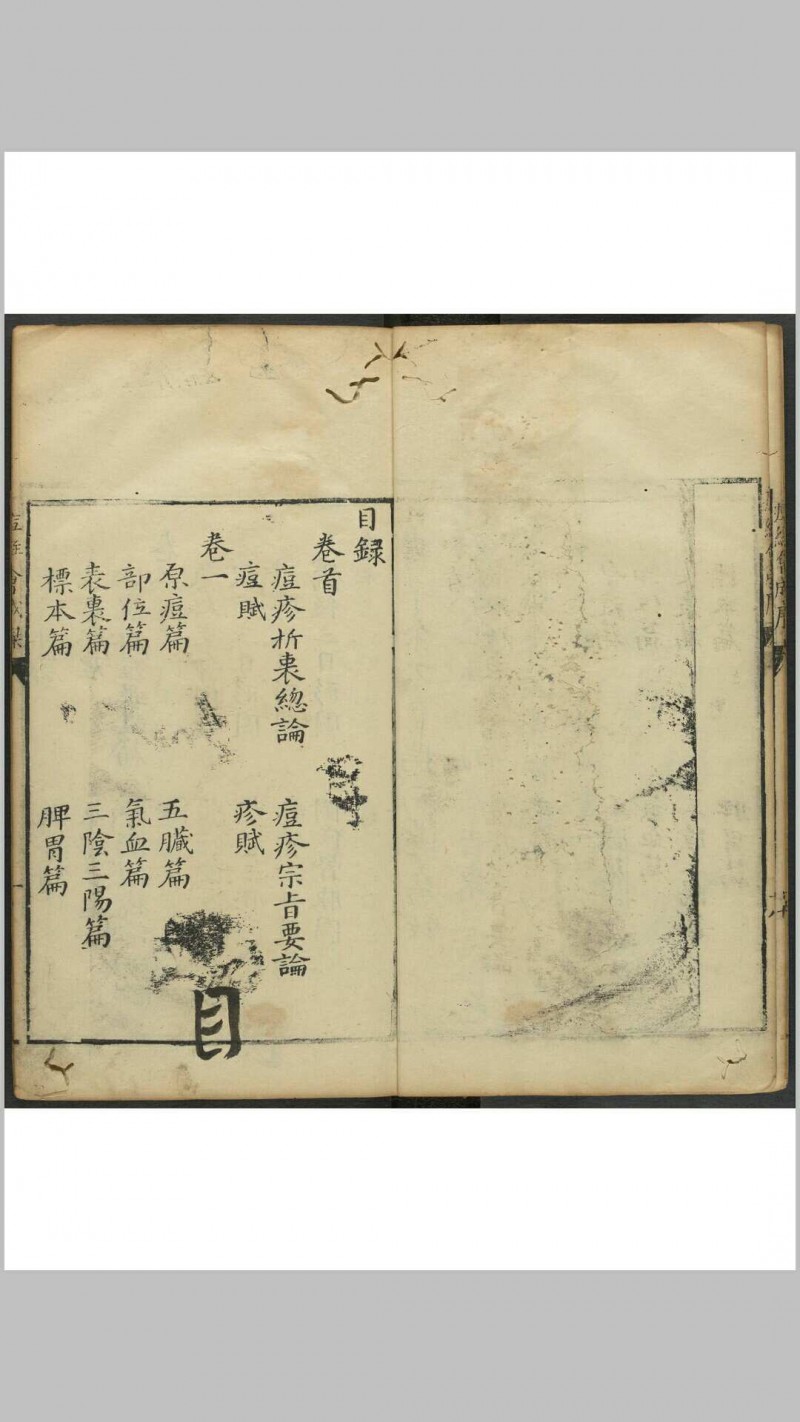 目録
卷首
痘疹折衷總論　痘疹宗旨要論
痘賦　疹賦
卷一
原痘篇　五臟篇
部位篇　氣血篇
表裏篇　三陰三陽篇
標本篇　脾胃篇
目